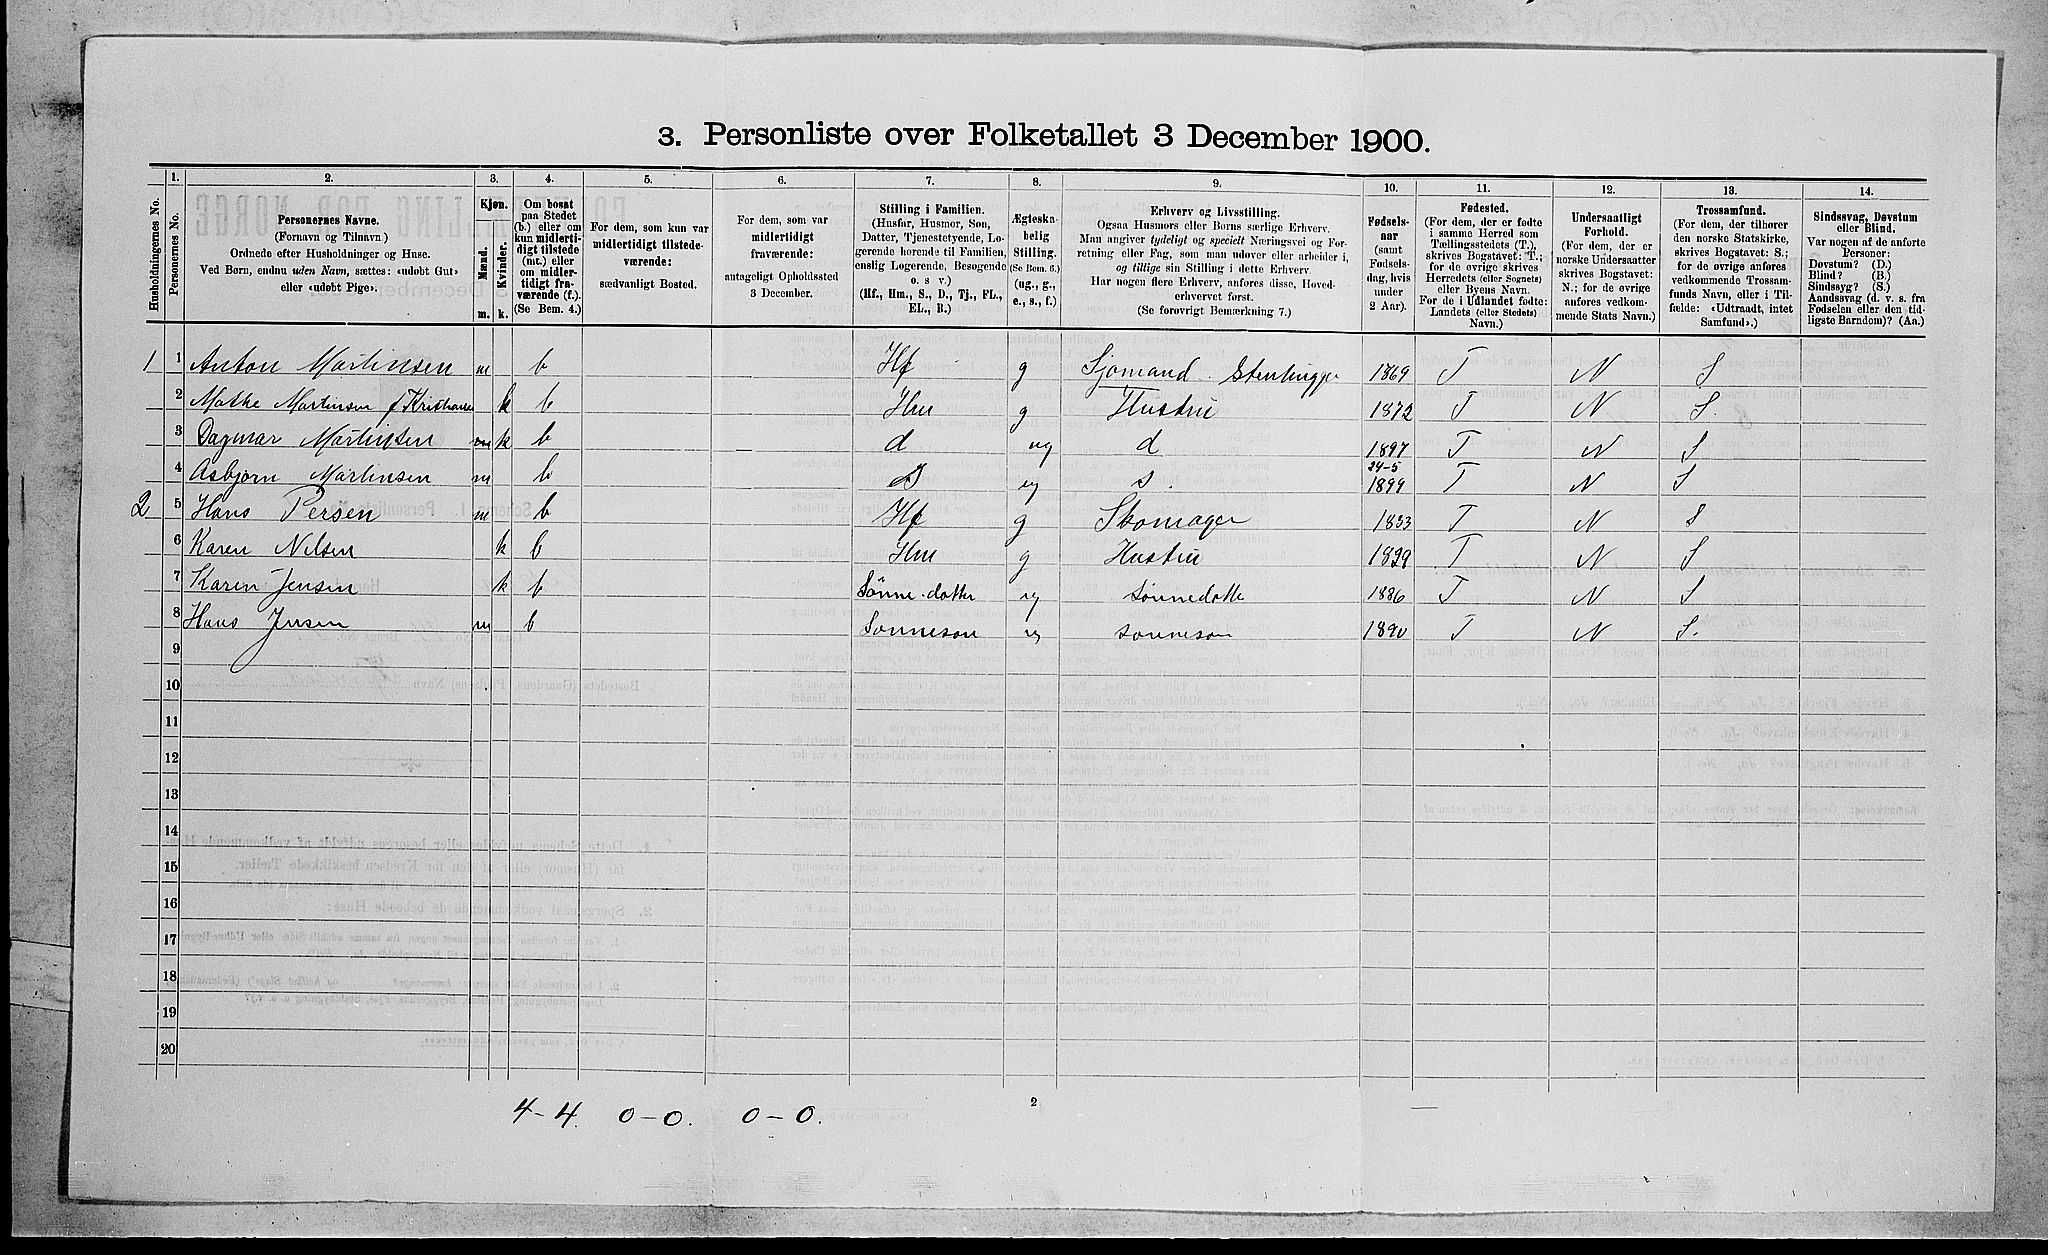 3. Personliste over Folketallet 3 December 1900.
Husholdningernes No.
1.
Personernes No.
2.
Personernes Navne.
(Fornavn og Tilnavn)
Ordnede efter Husholdninger og Huse.
Ved Børn, endnu uden Navn, sættes: «udøbt Gut»
eller «udøbt Pige».
3.
Kjøn.
Mænd.
Kvinder.
m. k.
4.
Om bosat
paa Stedet
(b.) eller om
kun midlerti-
digt tilstede
(mt.) eller
om midler-
tidigt fra-
værende (f.).
(Se Bem. 4.)
5.
For dem, som kun var
midlertidigt tilstede-
værende:
sædvanligt Bosted.
6.
For dem, som var
midlertidigt
fraværende:
antageligt Opholdssted
3 December.
7.
Stilling i Familien.
(Husfar, Husmor, Søn,
Datter, Tjenestetyende, Lo-
gerende hørende til Familien,
enslig Logerende, Besøgende
o. s v.)
(Hf., Hm., S., D., Tj., FL.,
EL., B.)
8.
Ægteska-
belig
Stilling.
(Se Bem. 6.)
(ug., g.,
e., s., f.)
9.
Erhverv og Livsstilling.
Ogsaa Husmors eller Børns særlige Erhverv.
Man angiver tydeligt og specielt Næringsvei og For-
retning eller Fag, som man udøver eller arbeider i,
og tillige sin Stilling i dette Erhverv.
Har nogen flere Erhverv, anføres disse, Hoved-
erhvervet først.
(Se forøvrigt Bemærkning 7.)
10.
Fødsels-
aar
(samt
Fødsels-
dag, hvis
under
2 Aar).
11.
Fødested.
(For dem, der er fødte
i samme Herred som
Tællingsstedets (T.),
skrives Bogstavet: T.;
for de øvrige skrives
Herredets (eller Sognets)
eller Byens Navn.
For de i Udlandet fødte:
Landets (eller Stedets)
Navn.)
12.
Undersaatligt
Forhold.
(For dem, der er
norske Undersaatter
skrives Bogstavet:
N.; for de øvrige
anføres vedkom-
mende Stats Navn.)
13.
Trossamfund.
(For dem, der tilhører
den norske Statskirke,
skrives Bogstavet: S.;
for de øvrige anføres
vedkommende Trossam-
funds Navn, eller i Til-
fælde: «Udtraadt, intet
Samfund».)
14.
Sindssvag, Døvstum
eller Blind.
Var nogen af de anførte
Personer:
Døvstum? (D.)
Blind? (B.)
Sindssyg? (S.)
Aandssvag (d. v. s. fra
Fødselen eller den tid-
ligste Barndom)? (Aa.)
1 1 Anton Martinsen m b Hf g Sjømand. Stenhugger 1869 T N S
2 Mathe Martinsen f Kristiansen k b Hm g Hustru 1872 T N S.
3 Dagmar Martinsen m k b d ug d 1897 T N S
4 Asbjørn Martinsen m b S ug s. 24-5 1899 T N S
2 5 Hans Persen m b Hf g Skomager 1833 T N S
6 Karen Nilsen k b Hm g Hustru 1829 T N S
7 Karen Jensen k b Sønne-datter ug Sønnedatter 1886 T N S
8 Hans Jensen m b Sønnesøn ug sønnesøn 1890 T N S.
9
10
11
12
13
14
15
16
17
18
19
20
4-4. 0-0. 0-0.
2